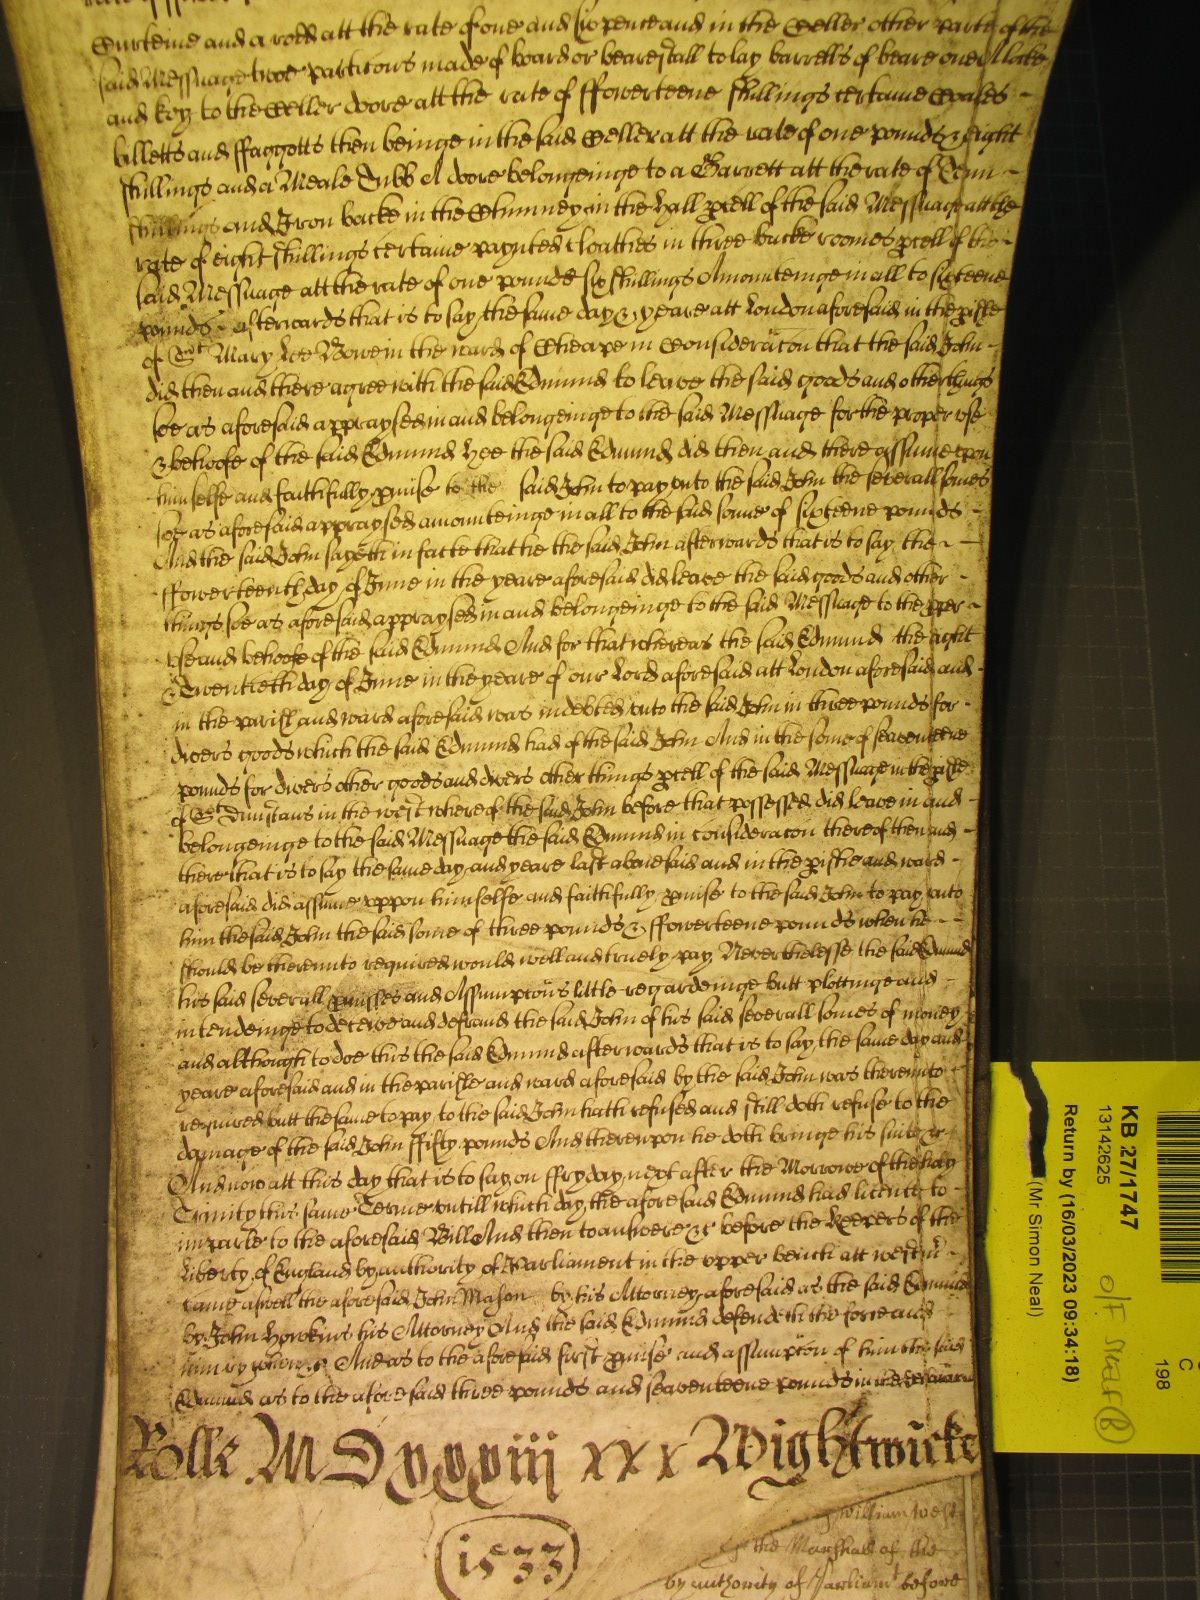 Curteine and a rodd att the rate of one and six pence and in the Celler other parte of the
said Messuage twoe particons made of board or beare stall to lay barrells of beare one Locke
and key to the Celler doore att the rate of ffowerteene shillings certaine Coales
billetts and ffaggotts then beinge in the said Celler att the rate of one pounds & eight
shillings and a Meale Tubb A doore belongeinge to a Garrett att the rate of Tenn
shillings and Iron backe in the Chimney in the hall pcell of the said Messuage att the
rate of eight shillings certaine paynted Cloathes in three backe roomes pcell of the
said Messuage att the rate of one pounde six shillings Amounteinge in all to sixteene
pounds afterwards that is to say the same day & yeare att London aforesaid in the pishe
of Snt Mary Lee Bowe in the ward of Cheape in Consideracon that the said John
did then and there agree with the said Edmund to leave the said goods and other things
soe as aforesaid appraysed in and belongeinge to the said Messuage for the proper use
& behoofe of the said Edmund Hee the said Edmund did then and there assume upon
himselfe and faithfully pmise to the said John to pay unto the said John the severall somes
soe as aforesaid appraysed amounteinge in all to the said some of sixteene pounds
And the said John sayeth in facte that he the said John afterwards that is to say the
ffowerteenth day of June in the yeare aforesaid did leave the said goods and other
things soe as aforesaid appraysed in and belongeinge to the said Messuage to the pper
use and behoofe of the said Edmund And for that whereas the said Edmund the eight
& Twentieth day of June in the yeare of our Lord aforesaid att London aforesaid and
in the parish and ward aforesaid was indebted unto the said John in three pounds for
divers goods which the said Edmund had of the said John And in the some of seaventeene
pounds for divers other goods and divers other things pcell of the said Messuage in the pishe
of St Dunstans in the west whereof the said John before that possessed did leave in and
belongeinge to the said Messuage the said Edmund in consideracon thereof then and
there that is to say the same day and yeare last abovesaid and in the pishe and ward
aforesaid did assume uppon himselfe and faithfully pmise to the said John to pay unto
him the said John the said some of three pounds & ffowerteene pounds when he
should be thereunto required would well and truely pay Neverthelesse the said Edmund
his said severall pmisses and Assumptons little regardeinge butt plottinge and
intendeinge to deceive and defraud the said John of his said severall somes of money
and although to doe this the said Edmund afterwards that is to say the same day and
yeare aforesaid and in the parishe and ward aforesaid by the said John was thereunto
required butt the same to pay to the said John hath refused and still doth refuse to the
damage of the said John ffifty pounds And thereupon he doth bringe his suite &c
And now att this day that is to say on ffryday next after the Morrowe of the holy
Trinity this same Terme untill which day the aforesaid Edmund had licence to
imparle to the aforesaid Bill And then to answere &c before the Keepers of the
liberty of England by authority of Parliament in the upper bench att westmr
came aswell the aforesaid John Mason by his Attorney aforesaid as the said Edmund
by John Howkins his Attorney And the said Edmund defendeth the force and
iniury when &c And as to the aforesaid first pmise and assumpton of him the said
Edmund as to the aforesaid three pounds and seaventeene pounds in the
Rolle MDxxxiij xxx Wightwicke
1533
William West
the Marshall of the
by authority of Parliamt before
KB 27/1747
13142625
Return by (16/03/2023 09:34:18)
(Mr Simon Neal)
C
198